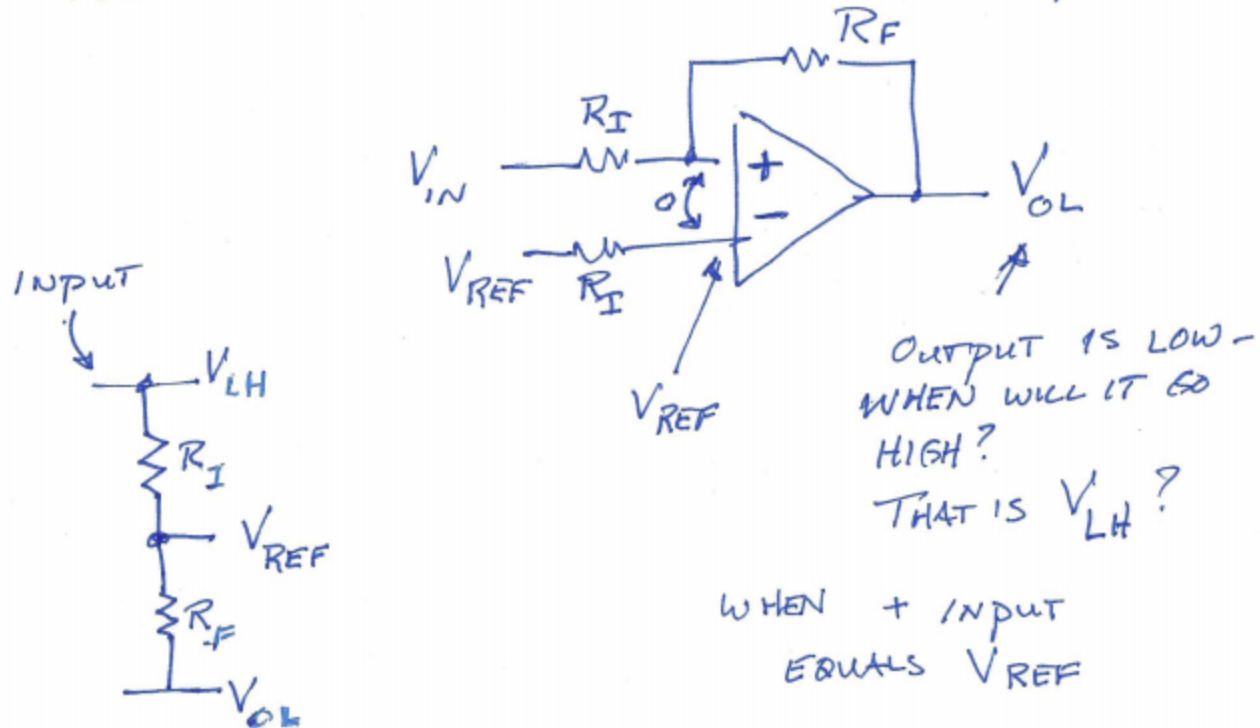 R_F
R_I
V_IN
+
0
−
V_OL
V_REF
R_I
V_REF
OUTPUT IS LOW -
WHEN WILL IT GO
HIGH?
THAT IS V_LH?
WHEN + INPUT
EQUALS V_REF
INPUT
V_LH
R_I
V_REF
R_F
V_OL